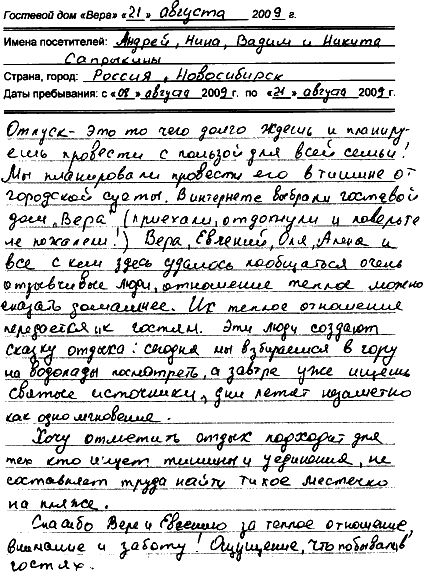 Гостевой дом «Вера» «21» августа 2009 г.
Имена посетителей: Андрей, Нина, Вадим и Никита
Сапрыкины
Страна, город: Россия, Новосибирск
Даты пребывания: с «08» августа 2009 г. по «21» августа 2009 г.
Отпуск - это то чего долго ждешь и планиру-
ешь провести с пользой для всей семьи!
Мы планировали провести его в тишине от
городской суеты. В интернете выбрали гостевой
дом „Вера" (приехали, отдохнули и поверьте
не пожалели!) Вера, Евгений, Оля, Алена и
все с кем здесь удалось пообщаться очень
отзывчивые люди, отношение теплое можно
сказать домашнее. Их теплое отношение
передается их гостям. Эти люди создают
сказку отдыха: сегодня мы взбираемся в гору
на водопады посмотреть, а завтра уже ищешь
святые источники, дни летят незаметно
как одно мгновение.
Хочу отметить отдых подходит для
тех кто ищет тишины и уединения, не
составляет труда найти тихое местечко
на пляже.
Спасибо Вере и Евгению за теплое отношение,
внимание и заботу! Ощущение, что побывали в
гостях.